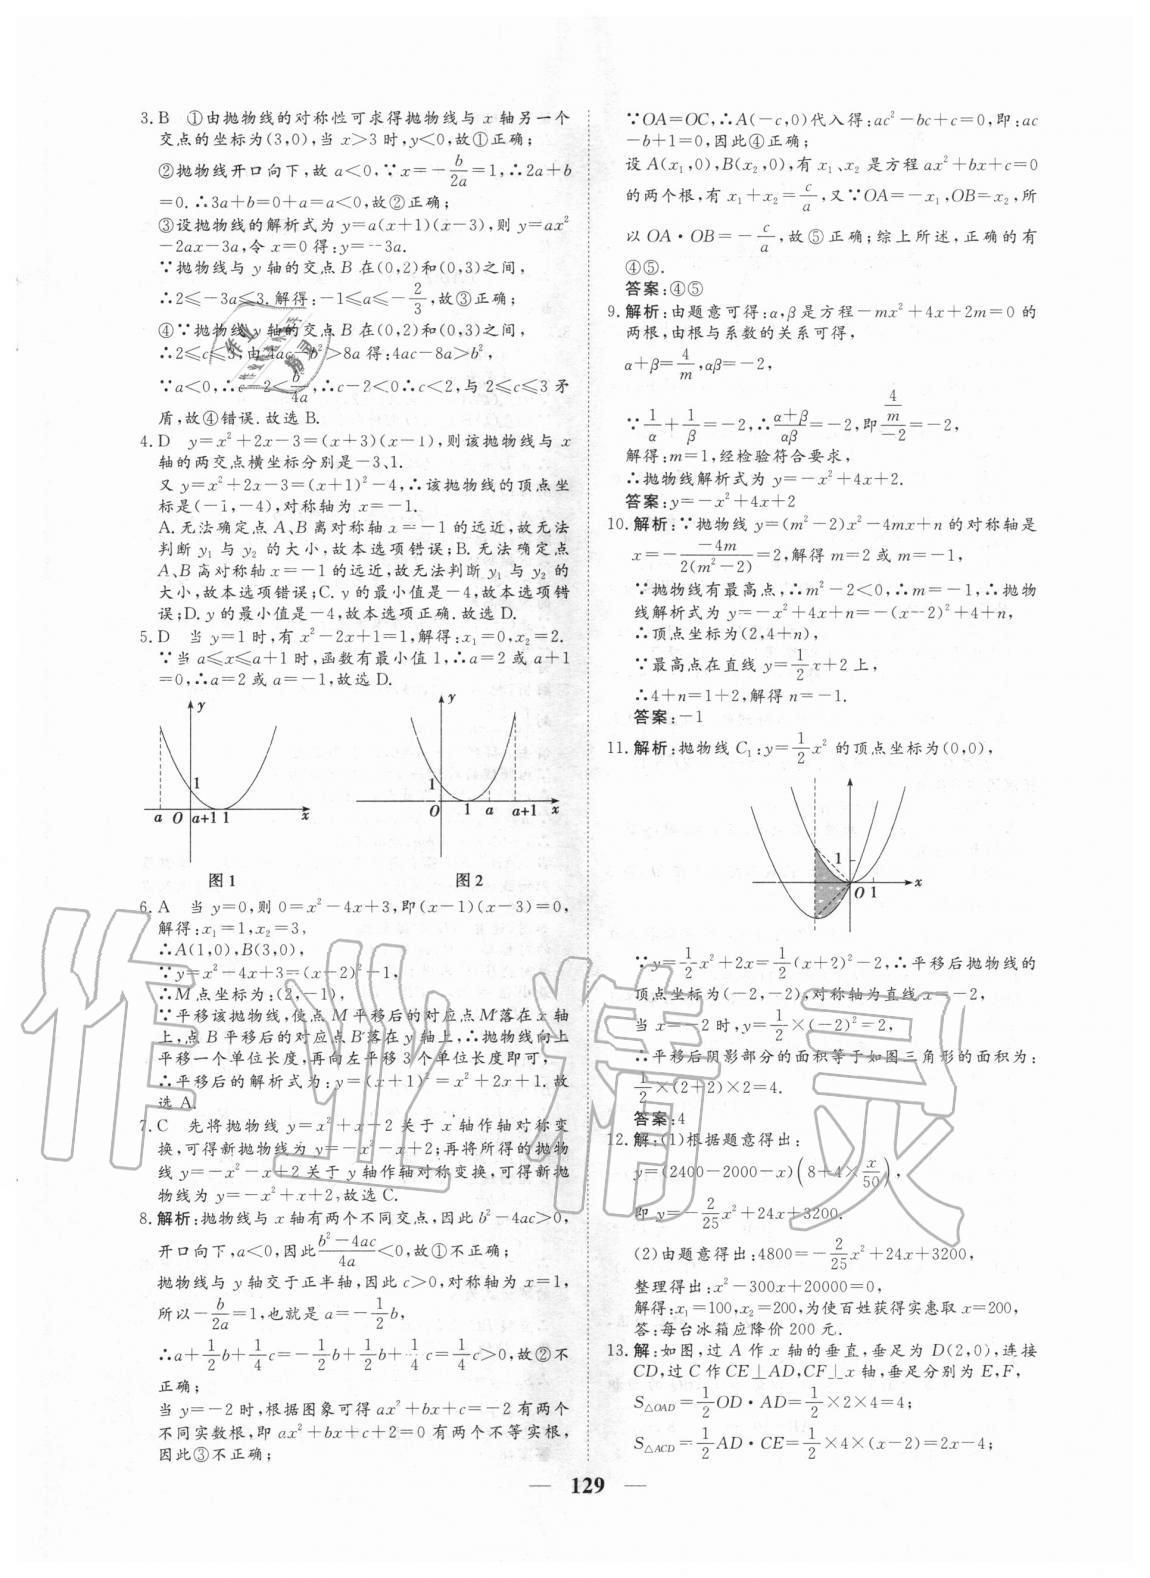 3. B ①由抛物线的对称性可求得抛物线与 x 轴另一个
交点的坐标为(3,0),当 x>3 时,y<0,故①正确;
②抛物线开口向下,故 a<0,∵x=-b/2a=1,∴2a+b
=0.∴3a+b=0+a=a<0,故②正确;
③设抛物线的解析式为 y=a(x+1)(x-3),则 y=ax²
-2ax-3a,令 x=0 得:y=-3a.
∵抛物线与 y 轴的交点 B 在(0,2)和(0,3)之间,
∴2≤-3a≤3.解得:-1≤a≤-2/3,故③正确;
④∵抛物线 y 轴的交点 B 在(0,2)和(0,3)之间,
∴2≤c≤3,由 4ac-b²>8a 得:4ac-8a>b²,
∵a<0,∴c-2<b²/4a,∴c-2<0∴c<2,与 2≤c≤3 矛
盾,故④错误.故选 B.
4. D y=x²+2x-3=(x+3)(x-1),则该抛物线与 x
轴的两交点横坐标分别是-3、1.
又 y=x²+2x-3=(x+1)²-4,∴该抛物线的顶点坐
标是(-1,-4),对称轴为 x=-1.
A.无法确定点 A、B 离对称轴 x=-1 的远近,故无法
判断 y₁ 与 y₂ 的大小,故本选项错误;B.无法确定点
A、B 离对称轴 x=-1 的远近,故无法判断 y₁ 与 y₂ 的
大小,故本选项错误;C.y 的最小值是-4,故本选项错
误;D.y 的最小值是-4,故本选项正确.故选 D.
5. D 当 y=1 时,有 x²-2x+1=1,解得:x₁=0,x₂=2.
∵当 a≤x≤a+1 时,函数有最小值 1,∴a=2 或 a+1
=0,∴a=2 或 a=-1,故选 D.
y
1
a O a+1 1 x
图 1
y
1
O 1 a a+1 x
图 2
6. A 当 y=0,则 0=x²-4x+3,即(x-1)(x-3)=0,
解得:x₁=1,x₂=3,
∴A(1,0),B(3,0),
∵y=x²-4x+3=(x-2)²-1,
∴M 点坐标为:(2,-1),
∵平移该抛物线,使点 M 平移后的对应点 M′落在 x 轴
上,点 B 平移后的对应点 B′落在 y 轴上,∴抛物线向上
平移一个单位长度,再向左平移 3 个单位长度即可,
∴平移后的解析式为:y=(x+1)²=x²+2x+1.故
选 A.
7. C 先将抛物线 y=x²+x-2 关于 x 轴作轴对称变
换,可得新抛物线为 y=-x²-x+2;再将所得的抛物
线 y=-x²-x+2 关于 y 轴作轴对称变换,可得新抛
物线为 y=-x²+x+2,故选 C.
8. 解析:抛物线与 x 轴有两个不同交点,因此 b²-4ac>0,
开口向下,a<0,因此(b²-4ac)/4a<0,故①不正确;
抛物线与 y 轴交于正半轴,因此 c>0,对称轴为 x=1,
所以-b/2a=1,也就是 a=-1/2b,
∴a+1/2b+1/4c=-1/2b+1/2b+1/4c=1/4c>0,故②不
正确;
当 y=-2 时,根据图象可得 ax²+bx+c=-2 有两个
不同实数根,即 ax²+bx+c+2=0 有两个不等实根,
因此③不正确;
∵OA=OC,∴A(-c,0)代入得:ac²-bc+c=0,即:ac
-b+1=0,因此④正确;
设 A(x₁,0),B(x₂,0),有 x₁、x₂ 是方程 ax²+bx+c=0
的两个根,有 x₁+x₂=c/a,又∵OA=-x₁,OB=x₂,所
以 OA·OB=-c/a,故⑤正确;综上所述,正确的有
④⑤.
答案:④⑤
9. 解析:由题意可得:α,β 是方程-mx²+4x+2m=0 的
两根,由根与系数的关系可得,
α+β=4/m,αβ=-2,
∵1/α+1/β=-2,∴(α+β)/αβ=-2,即(4/m)/-2=-2,
解得:m=1,经检验符合要求,
∴抛物线解析式为 y=-x²+4x+2.
答案:y=-x²+4x+2
10. 解析:∵抛物线 y=(m²-2)x²-4mx+n 的对称轴是
x=-(-4m)/2(m²-2)=2,解得 m=2 或 m=-1,
∵抛物线有最高点,∴m²-2<0,∴m=-1,∴抛物
线解析式为 y=-x²+4x+n=-(x-2)²+4+n,
∴顶点坐标为(2,4+n),
∵最高点在直线 y=1/2x+2 上,
∴4+n=1+2,解得 n=-1.
答案:-1
11. 解析:抛物线 C₁:y=1/2x² 的顶点坐标为(0,0),
1
O 1 x
∵y=1/2x²+2x=1/2(x+2)²-2,∴平移后抛物线的
顶点坐标为(-2,-2),对称轴为直线 x=-2,
当 x=-2 时,y=1/2×(-2)²=2,
∴平移后阴影部分的面积等于如图三角形的面积为:
1/2×(2+2)×2=4.
答案:4
12. 解:(1)根据题意得出:
y=(2400-2000-x)(8+4×x/50),
即 y=-2/25x²+24x+3200.
(2)由题意得出:4800=-2/25x²+24x+3200,
整理得出:x²-300x+20000=0,
解得:x₁=100,x₂=200,为使百姓获得实惠取 x=200,
答:每台冰箱应降价 200 元.
13. 解:如图,过 A 作 x 轴的垂直,垂足为 D(2,0),连接
CD,过 C 作 CE⊥AD,CF⊥x 轴,垂足分别为 E,F,
S△OAD=1/2OD·AD=1/2×2×4=4;
S△ACD=1/2AD·CE=1/2×4×(x-2)=2x-4;
— 129 —
作业精灵